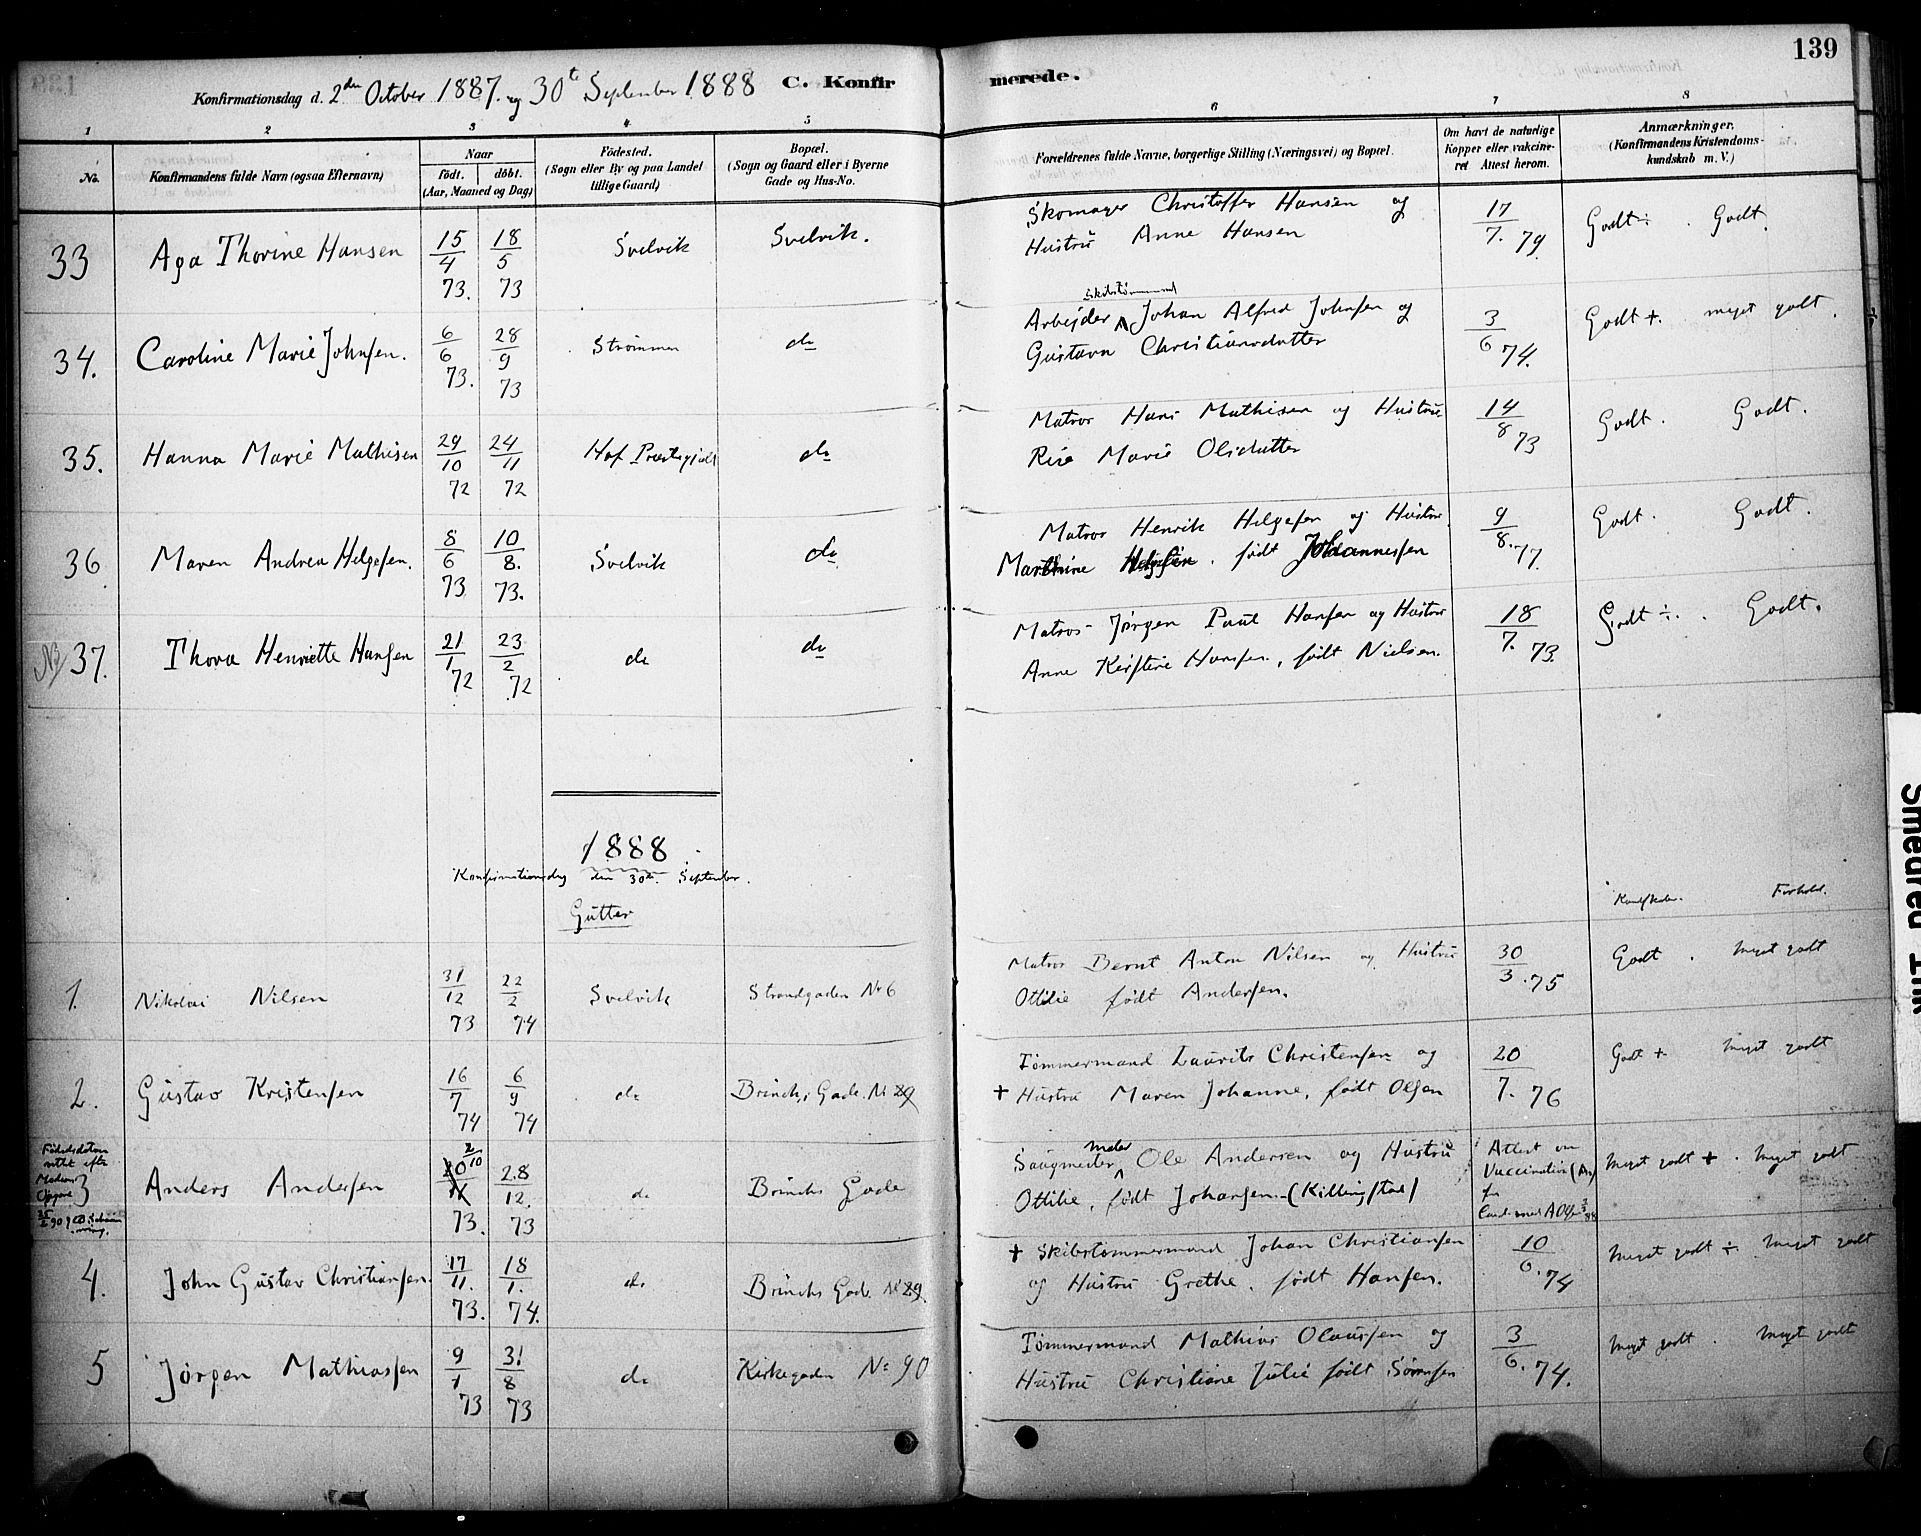 139
Konfirmationsdag d. 2den October 1887. og 30t September 1888 C. Konfirmerede.
1 2 3 4 5 6 7 8
No. Konfirmandens fulde Navn (ogsaa Efternavn) Naar födt. döbt. (Aar, Maaned og Dag) Födested. (Sogn eller By og paa Landet tillige Gaard) Bopæl. (Sogn og Gaard eller i Byerne Gade og Hus-No. Forældrenes fulde Navne, borgerlige Stilling (Næringsvei) og Bopæl. Om havt de naturlige Kopper eller vakcineret Attest herom. Anmærkninger. (Konfirmandens Kristendomskundskab m. V.)
33 Aga Thorine Hansen 15/4 73. 18/5 73 Svelvik Svelvik. Skomager Christoffer Hansen og
Hustru Anne Hansen 17/7. 79 Godt ÷ . Godt.
34. Caroline Marie Johnsen. 6/6 73. 28/9 73 Strömmen do Arbejder Skibstömmermand Johan Alfred Johnsen og
Gustava Christiansdatter 3/6 74. Godt +. meget godt.
35. Hanna Marie Mathisen 29/10 72 24/11 72 Hof Præstegjeld do Matros Hans Mathisen og Hustru
Rise Marie Olsdatter 14/8 73 Godt. Godt.
36 Maren Andrea Helgesen. 8/6 73 10/8. 73. Svelvik do Matros Henrik Helgesen og Hustru
Marthine Helgesen. födt Johannessen 9/8. 77. Godt. Godt.
37. Thora Henriette Hansen 21/1 72 23/2 72 do do Matros Jörgen Paul Hansen og Hustru
Anne Kirstine Hansen, födt Nielsen. 18/7. 73. Godt ÷. Godt.
1888
Konfirmationsdag den 30te September.
Gutter
Kundskaber. Forhold.
1. Nikolai Nilsen 31/12 73 22/2 74 Svelvik Strandgaden No 6 Matros Bernt Anton Nilsen og Hustru
Ottilie födt Andersen. 30/3. 75 Godt . Meget godt
2. Gustav Kristensen 16/7 74 6/9 74 do Brinchs Gade. No 29 Tömmermand Laurits Christensen og
+ Hustru Maren Johanne, födt Olsen 20/7. 76 Godt + Meget godt
Födselsdatum rettet efter Moderens Opgave
Anders Andersen 2/10 73. 28/12. 73 do Brinchs Gade Saugmester Ole Andersen og Hustru
Ottilie, födt Johansen (Killingstad) Attest om Vaccination Meget godt + . Meget godt
4. John Gustav Christiansen 17/11. 73. 18/1. 74. do Brinchs Gade. No 29. + Skibstömmermand Johan Christiansen
og Hustru Grethe, födt Hansen. 10/6. 74 Meget godt ÷ Meget godt
5 Jörgen Mathiassen 9/1 73 31/8 73 do Kirkegaden No 90 Tömmermand Mathias Olaussen og
Hustru Christiane Julie födt Sörensen 3/6. 74. Meget godt . Meget godt
Smedred Ink